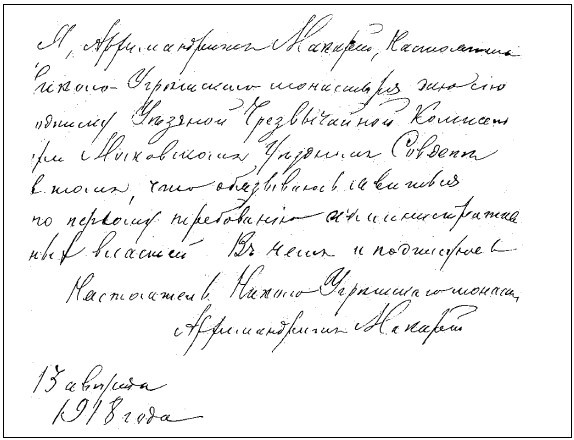 Я, Архимандрит Макарий, Настоятель
Николо-Угрешского монастыря даю сию
подписку Уездной Чрезвычайной Комиссии
при Московском Уездном Совдепе
в том, что обязываюсь явиться
по первому требованию административ
ных властей В чем и подписуюсь
Настоятель Николо Угрешского монаст.
Архимандрит Макарий
13 августа
1918 года